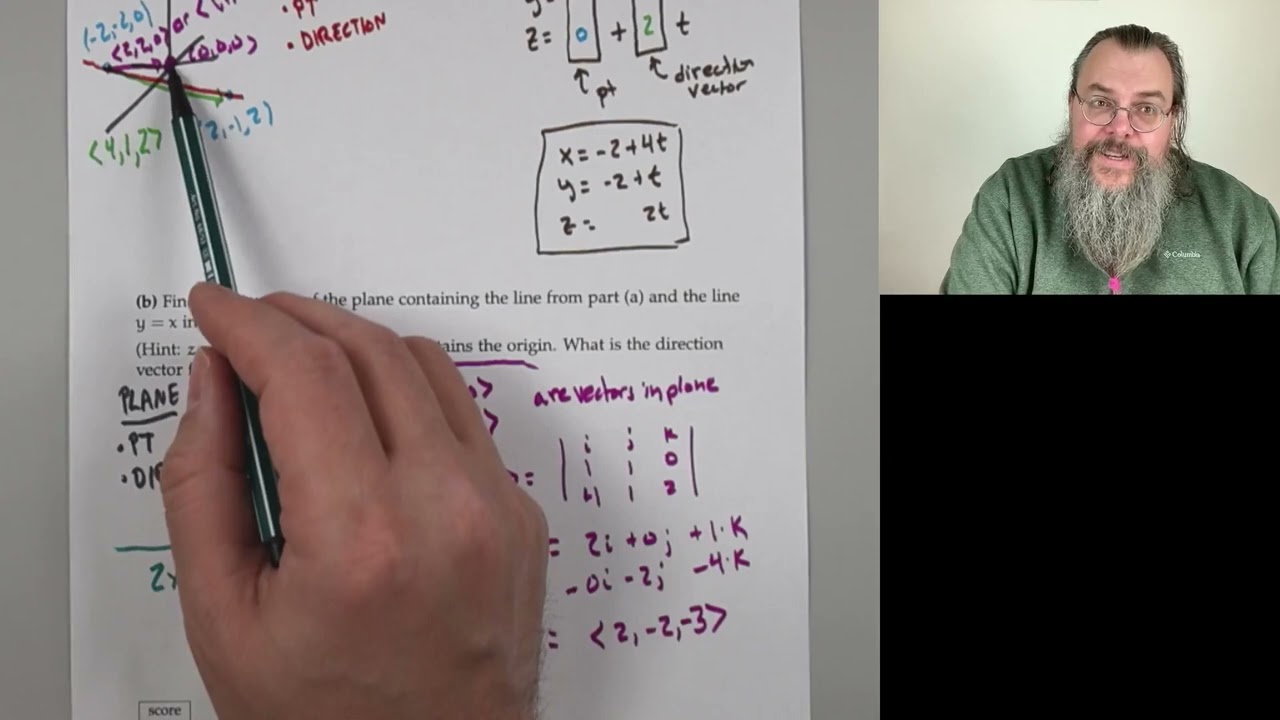 (-2,-2,0)
<2,2,0> or <1,1,
<0,0,0>
• PT
• DIRECTION
<4,1,2>
(2,-1,2)
y=
z= 0 + 2 t
↑ pt
↖ direction vector
x = -2+4t
y = -2+t
z = 2t
(b) Fin the plane containing the line from part (a) and the line
y = x in
(Hint: z ains the origin. What is the direction
vector
PLANE
• PT
• DI
0>
>
are vectors in plane
i j k
1 1 0
4 1 2
= 2i +0j +1·k
-0i -2j -4·k
= <2,-2,-3>
2x
score
Columbia